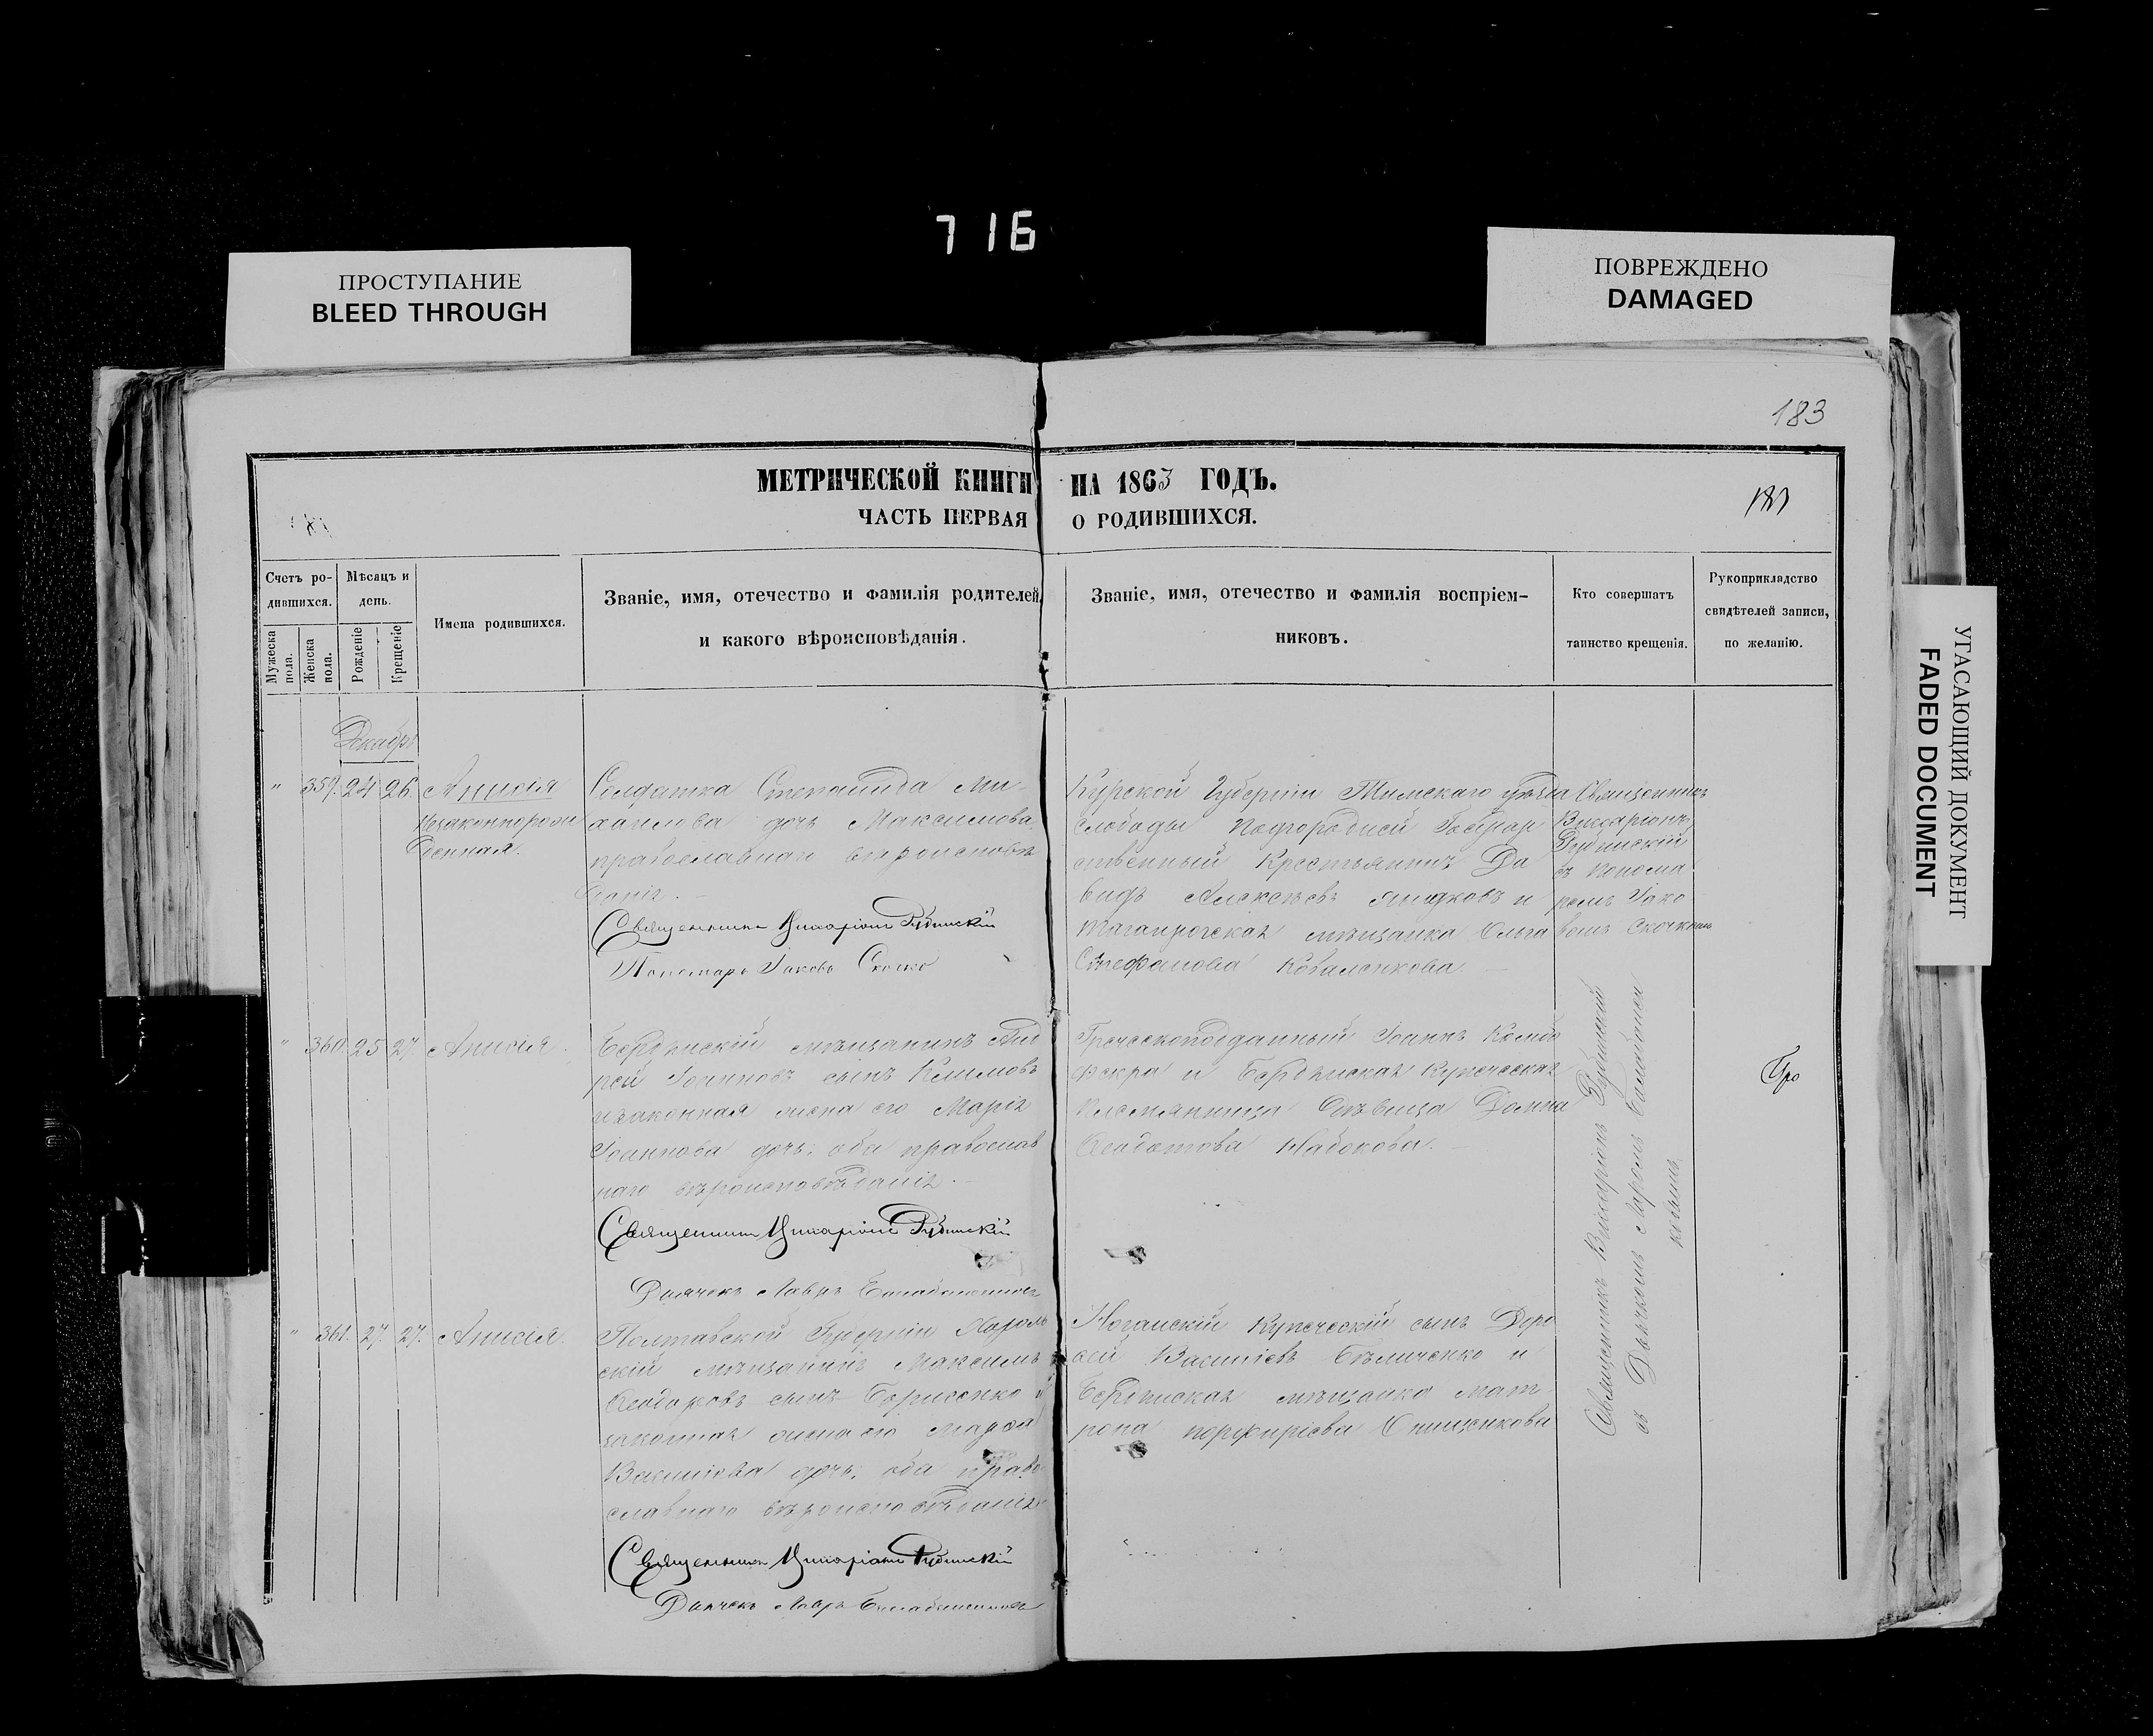 716
ПРОСТУПАНИЕ
BLEED THROUGH
ПОВРЕЖДЕНО
DAMAGED
УГАСАЮЩИЙ ДОКУМЕНТ
FADED DOCUMENT
183
МЕТРИЧЕСКОЙ КНИГИ НА 1863 ГОДЪ.
ЧАСТЬ ПЕРВАЯ О РОДИВШИХСЯ.
Счетъ ро-
дившихся.
Мужеска
пола.
Женска
пола.
Мѣсяцъ и
день.
Рожденіе
Крещеніе
Имена родившихся.
Званіе, имя, отечество и фамилія родителей,
и какого вѣроисповѣданія.
Званіе, имя, отечество и фамилія воспріем-
никовъ.
Кто совершатъ
таинство крещенія.
Рукоприкладство
свидѣтелей записи,
по желанію.
Декабрь
" 359. 24 26. Анисія
Незаконнорож
денная.
Солдатка Степанида Ми-
хаилова дочь Максимова
православнаго вѣроисповѣ
данія.
Священникъ Виссаріонъ
Пономарь Іаковъ
Курской Губерніи Тимскаго уѣзда
слободы Подгородней Государ
ственный Крестьянинъ Да
видъ Алексѣевъ и
Таганрогская мѣщанка Ольга
Стефанова Коваленкова.
Священникъ
Виссаріонъ
съ Понома
ремъ Іако
вомъ
" 360 25 27. Анисія.
Бердянскій мѣщанинъ Анд
рей Іоанновъ сынъ Климовъ
изаконная жена его Марія
Іоаннова дочь, оба православ
наго вѣроисповѣданія.
Священникъ Виссаріонъ
Дьячекъ Лавръ
Греческоподданный Іоаннъ
и Бердянская Купеческая
племянница дѣвица Домна
Ѳеодотова Набокова.
Священникъ Виссаріонъ
съ Дьячкомъ
Про
" 361. 27. 27. Анисія.
Полтавской Губерніи Хороль
скій мѣщанинъ Максимъ
Ѳеодоровъ сынъ Борисенко и
законная жена его Марфа
Василіева дочь, оба право
славнаго вѣроисповѣданія
Священникъ Виссаріонъ
Дьячекъ Лавръ
Ногайскій Купеческій сынъ Доро
ѳей Василіевъ Бѣличенко и
Бердянская мѣщанка Мат
рона Порфиріева Онищенкова